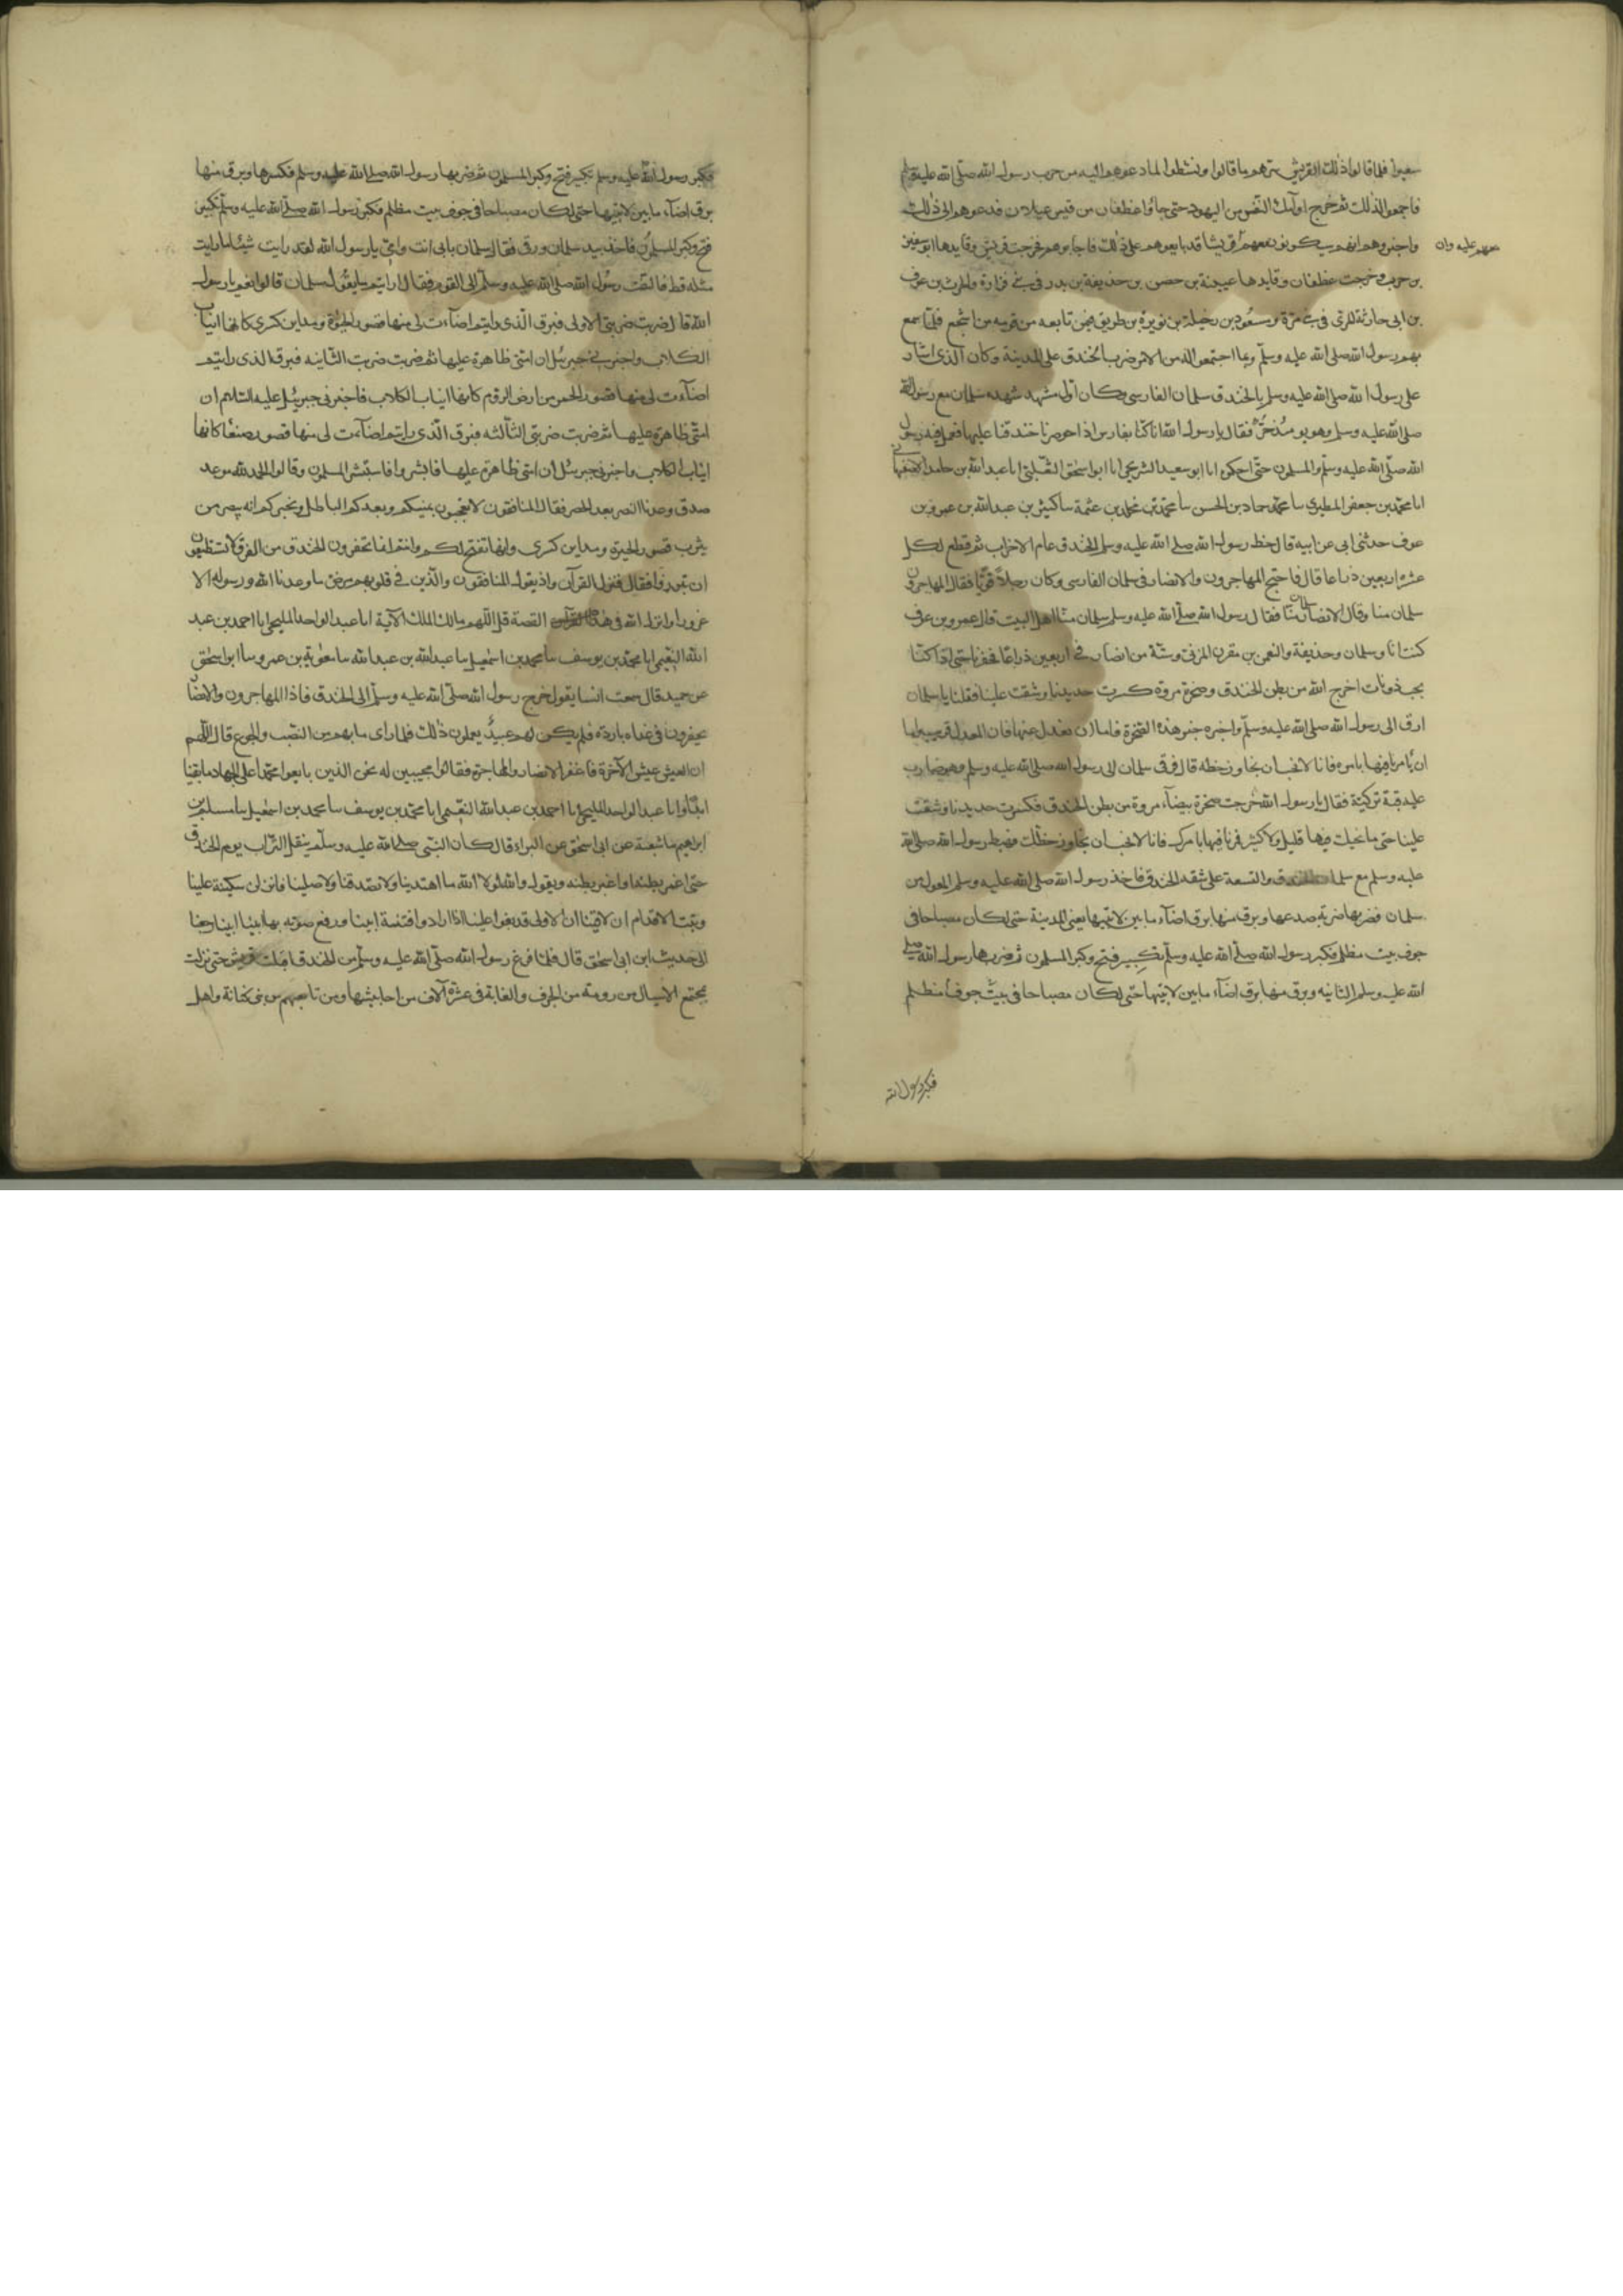 سعيرا فلما قالوا ذلك لقريش سرهم ما قالوا ونشطوا لما دعوهم اليه من حرب رسول الله صلى الله عليه وسلم
فاجمعوا لذلك ثم خرج اولئك النفر من اليهود حتى جاؤا غطفان من قيس عيلان فدعوهم الى ذلك
واخبروهم انهم سيكونون معهم عليه وان قريشا قد بايعوهم على ذلك فاجابوهم فخرجت قريش وقايدها ابو سفين
بن حرب وخرجت غطفان وقايدها عيينة بن حصن بن حذيفة بن بدر في بني فزارة والحرث بن عوف
بن ابي حارثة المري في بني مرة ومسعود بن رخيلة بن نويرة بن طريف فيمن تابعه من قومه من اشجع فلما سمع
بهم رسول الله صلى الله عليه وسلم وبما اجتمعوا له من الامر ضرب الخندق على المدينة وكان الذى اشار
على رسول الله صلى الله عليه وسلم بالخندق سلمان الفارسى وكان اول مشهد شهده سلمان مع رسول الله
صلى الله عليه وسلم وهو يومئذ حر فقال يا رسول الله انا كنا بفارس اذا حوصرنا خندقنا عليها فعمل فيه رسول
الله صلى الله عليه وسلم والمسلمون حتى احكموه انا ابو سعيد الشريحى انا ابو اسحق الثعلبى انا عبد الله بن حامد الاصفهانى
انا محمد بن جعفر المطيرى سا حماد بن الحسن سا محمد بن خالد بن عثمة سا كثير بن عبد الله بن عمرو بن
عوف حدثنى ابى عن ابيه قال خط رسول الله صلى الله عليه وسلم الخندق عام الاحزاب ثم قطع لكل
عشرة اربعين ذراعا قال فاحتج المهاجرون والانصار فى سلمان الفارسى وكان رجلا قويا فقال المهاجرون
سلمان منا وقال الانصار سلمان منا فقال رسول الله صلى الله عليه وسلم سلمان منا اهل البيت قال عمرو بن عوف
كنت انا وسلمان وحذيفة والنعمن بن مقرن المزنى وستة من انصار فى اربعين ذراعا فحفرنا حتى اذا كنا
بجب ذوناب اخرج الله من بطن الخندق وصخرة مروة كسرت حديدنا وشقت علينا فقلنا يا سلمان
ارق الى رسول الله صلى الله عليه وسلم واخبره خبر هذه الصخرة فاما ان نعدل عنها فان المعدل قريب واما
ان يأمرنا فيها بامره فانا لا نحب ان نجاوز خطه قال فرقى سلمان الى رسول الله صلى الله عليه وسلم وهو ضارب
عليه قبة تركية فقال يا رسول الله خرجت صخرة بيضآء مروة من بطن الخندق فكسرت حديدنا وشقت
علينا حتى ما نحيك فيها قليل ولا كثير فمرنا فيها بامرك فانا لا نحب ان نجاوز خطك فهبط رسول الله صلى الله
عليه وسلم مع سلمان الخندق والتسعة على شقه الخندق فاخذ رسول الله صلى الله عليه وسلم المعول من
سلمان فضربها ضربة صدعها وبرق منها برق اضآء ما بين لابتيها يعنى المدينة حتى لكان مصباحا فى
جوف بيت مظلم فكبر رسول الله صلى الله عليه وسلم تكبير فتح وكبر المسلمون ثم ضربها رسول الله صلى
الله عليه وسلم الثانيه وبرق منها برق اضآء ما بين لابتيها حتى لكان مصباحا فى بيت جوف مظلم
فكبر رسول الله
فكبر رسول الله عليه وسلم تكبير فتح وكبر المسلمون ثم ضربها رسول الله صلى الله عليه وسلم فكسرها وبرق منها
برق اضآء ما بين لابتيها حتى لكان مصباحا فى جوف بيت مظلم فكبر رسول الله صلى الله عليه وسلم تكبير
فتح وكبر المسلمون فاخذ بيد سلمان ورقى فقال سلمان بابى انت وامى يا رسول الله لقد رايت شيئا ما رايت
مثله قط فالتفت رسول الله صلى الله عليه وسلم الى القوم فقال ارايتم ما يقول سلمان قالوا نعم يا رسول
الله قال ضربت ضربتى الاولى فبرق الذى رايتم اضآءت لى منها قصور الحيرة ومداين كسرى كانها انياب
الكلاب واخبرنى جبرئيل ان امتى ظاهرة عليها ثم ضربت ضربت الثانيه فبرق الذى رايتم
اضآءت لى منها قصور الحمر من ارض الروم كانها انياب الكلاب فاخبرنى جبرئيل عليه السلام ان
امتى ظاهرة عليها ثم ضربت ضربتى الثالثه فبرق الذى رايتم اضآءت لى منها قصور صنعا كانها
انياب الكلاب واخبرنى جبرئيل ان امتى ظاهرة عليها فابشروا فاستبشر المسلمون وقالوا الحمد لله موعد
صدق وعدنا النصر بعد الحصر فقال المنافقون لا تعجبون يمنيكم ويعدكم الباطل ويخبركم انه يبصر من
يثرب قصور الحيرة ومداين كسرى وانها تفتح لكم وانتم انما تحفرون الخندق من الفرق لا تستطيعون
ان تبرزوا فقال فنزل القرآن واذ يقول المنافقون والذين فى قلوبهم مرض ما وعدنا الله ورسوله الا
غرورا وانزل الله فى هذه القصة قل اللهم مالك الملك الآية انا عبد الواحد المليحى انا احمد بن عبد
الله النعيمى انا محمد بن يوسف سا محمد بن اسمعيل سا عبد الله بن عبد الله سا معوية بن عمرو سا ابو اسحق
عن حميد قال سمعت انسا يقول خرج رسول الله صلى الله عليه وسلم الى الخندق فاذا المهاجرون والانصار
يحفرون فى غداه باردة فلم يكن لهم عبيد يعملون ذلك فلما راى ما بهم من النصب والجوع قال اللهم
ان العيش عيش الآخرة فاغفر الانصار والمهاجرة فقالوا مجيبين له نحن الذين بايعوا محمدا على الجهاد ما بقينا
ابدا وانا عبد الواحد المليحى انا احمد بن عبد الله النعيمى انا محمد بن يوسف سا محمد بن اسمعيل سا مسلم بن
ابراهيم سا شعبة عن ابى اسحق عن البراء قال كان النبى صلى الله عليه وسلم ينقل التراب يوم الخندق
حتى اغمر بطنه او اغبر بطنه ويقول والله لولا الله ما اهتدينا ولا تصدقنا ولا صلينا فانزلن سكينة علينا
وثبت الاقدام ان لاقينا ان الاولى قد بغوا علينا اذا ارادوا فتنة ابينا ورفع صوته بها ابينا ابينا رجعنا
الى حديث ابن ابى اسحق قال فلما فرغ رسول الله صلى الله عليه وسلم من الخندق اقبلت قريش حتى نزلت
بمجتمع الاسيال من رومة من الجرف والغابة فى عشرة آلاف من احابيشها ومن تابعهم من بنى كنانة واهل